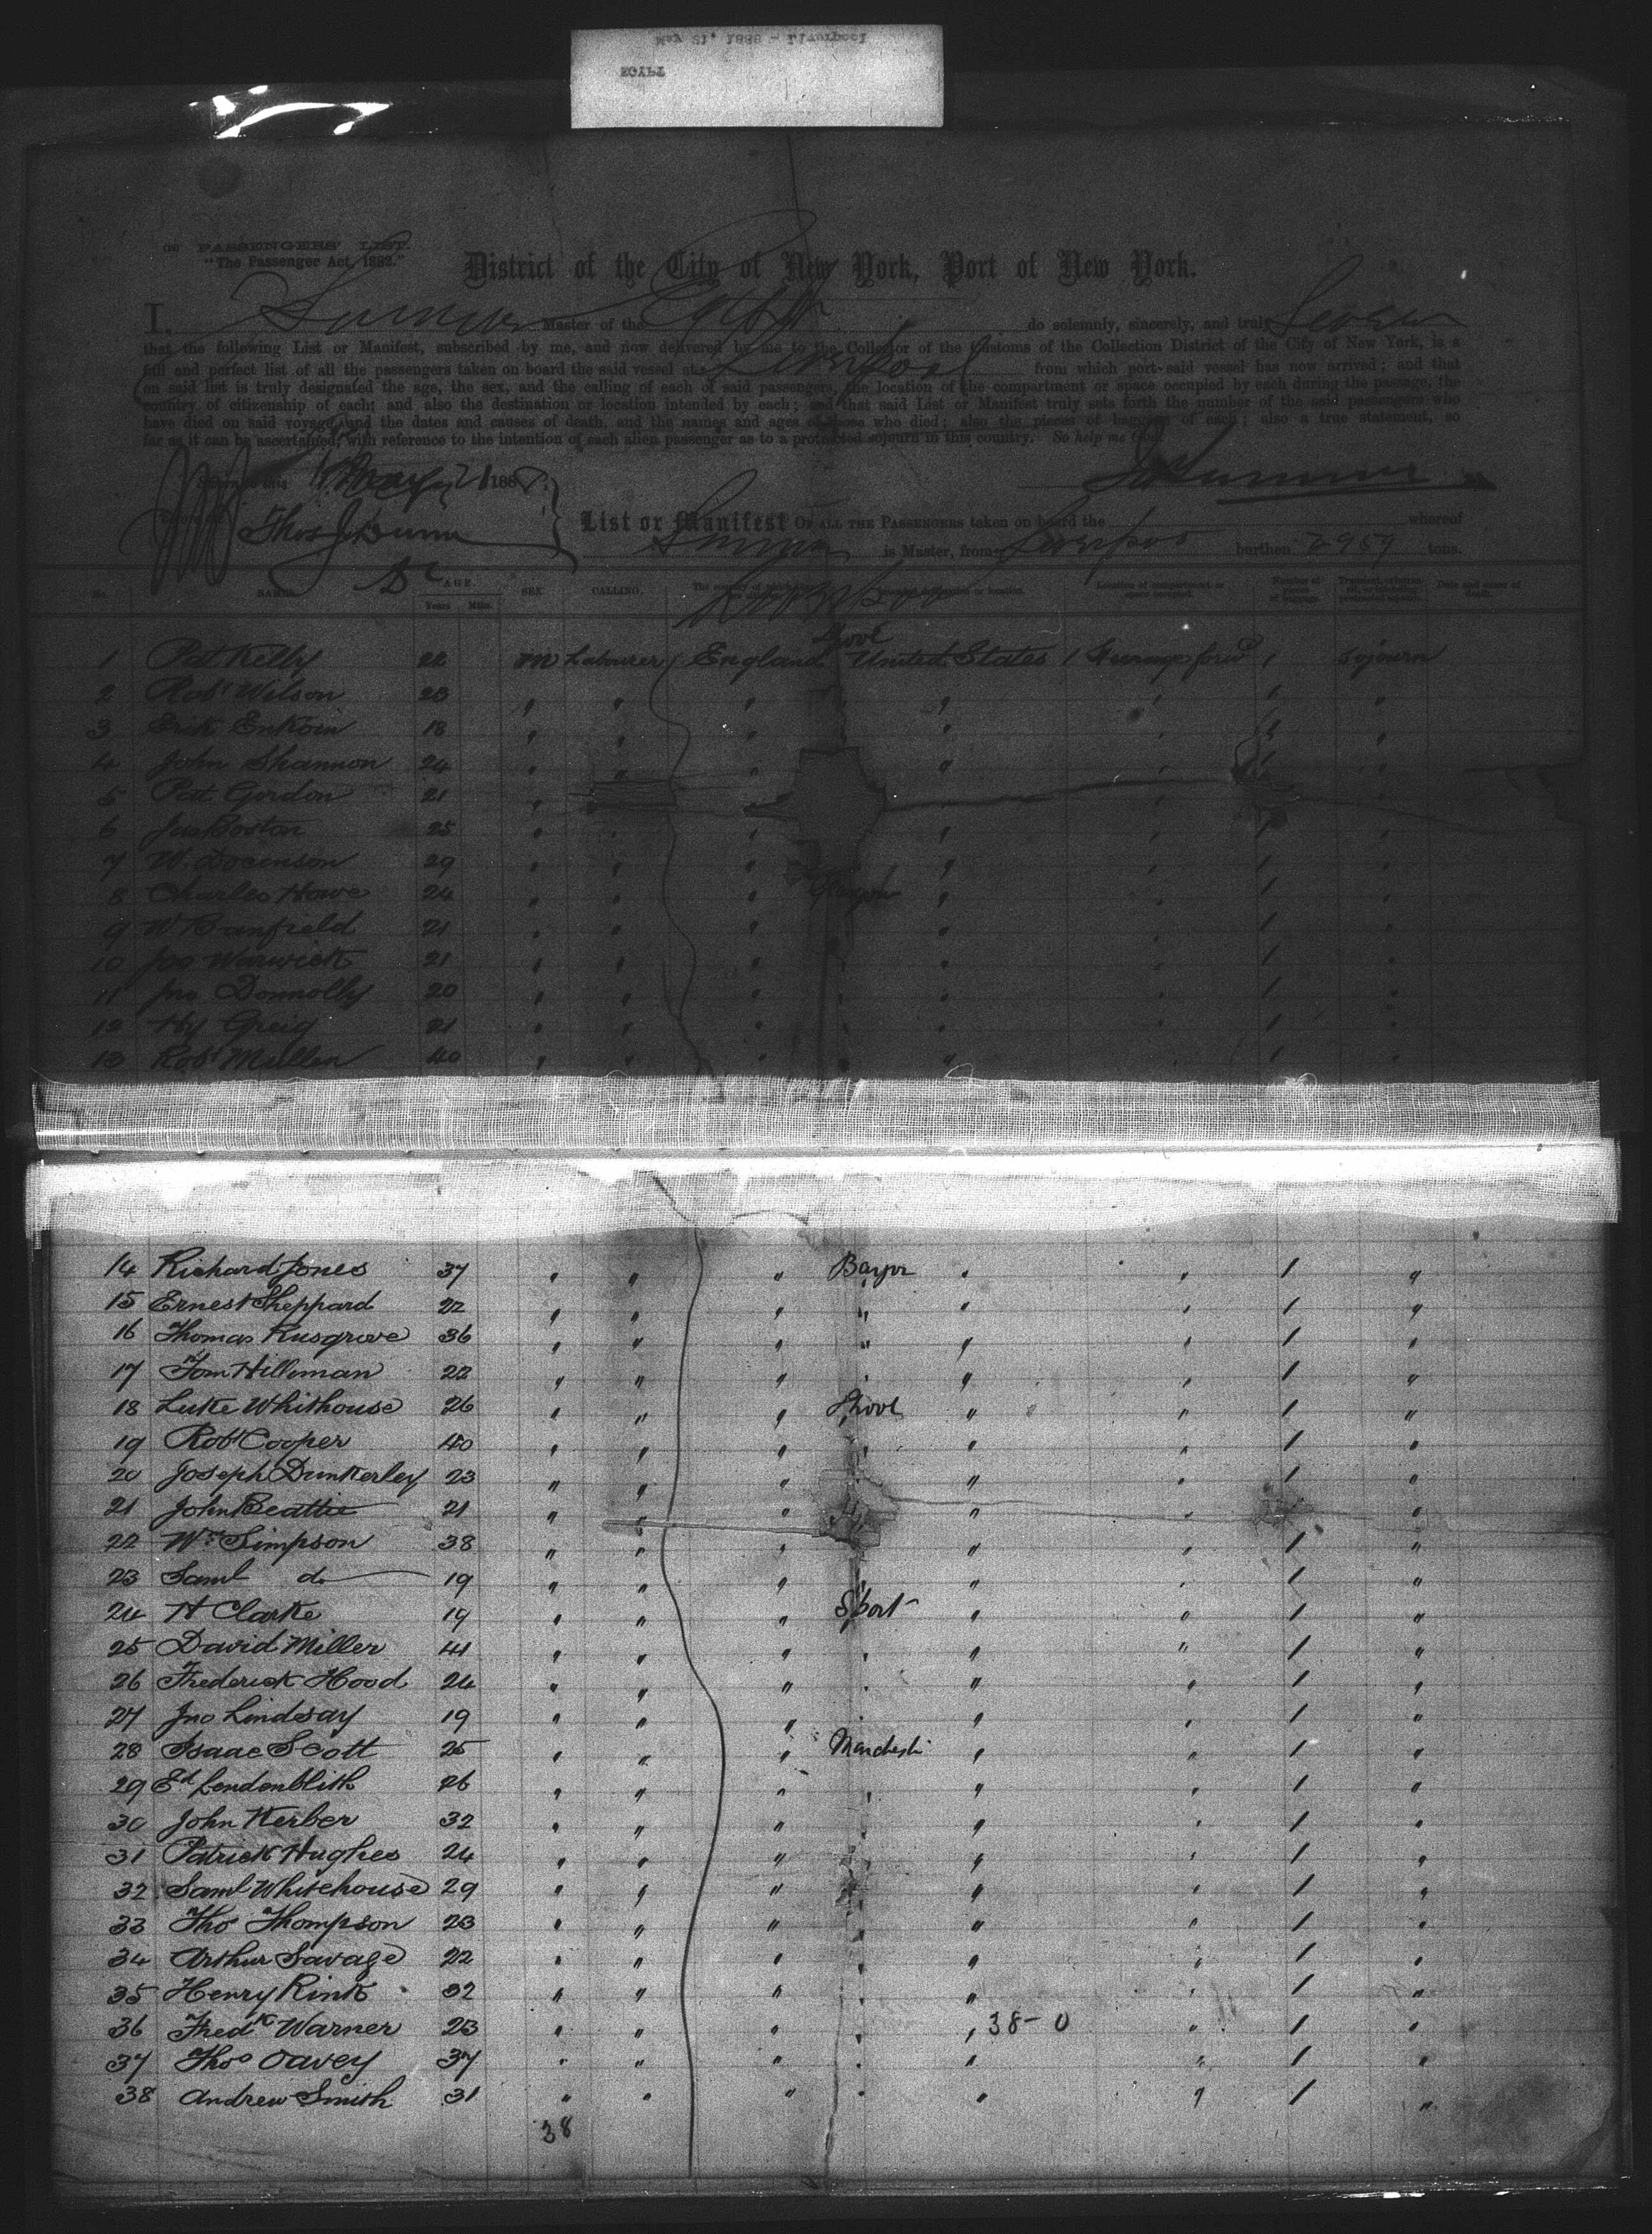 May 21, 1888 - Liverpool
EGYPT
(18) PASSENGERS' LIST.
"The Passenger Act, 1882."
District of the City of New York, Port of New York.
I, Sumner Master of the Egypt do solemnly, sincerely, and truly Swear
that the following List or Manifest, subscribed by me, and now delivered by me to the Collector of the Customs of the Collection District of the City of New York, is a
full and perfect list of all the passengers taken on board the said vessel at Liverpool from which port said vessel has now arrived; and that
on said list is truly designated the age, the sex, and the calling of each of said passengers, the location of the compartment or space occupied by each during the passage, the
country of citizenship of each; and also the destination or location intended by each; and that said List or Manifest truly sets forth the number of the said passengers who
have died on said voyage, and the dates and causes of death, and the names and ages of those who died; also the pieces of baggage of each; also a true statement, so
far as it can be ascertained, with reference to the intention of each alien passenger as to a protracted sojourn in this country. So help me God.
Sworn to this May 21 1888 Sumner
Thos J Dunn
List or Manifest OF ALL THE PASSENGERS taken on board the whereof
Sumner is Master, from Liverpool burthen 2969 tons.
No. NAMES. AGE. Years Mths. SEX CALLING. intended destination or location. Location of compartment or space occupied. Number of pieces of baggage. Date and cause of death.
L'pool
1 Pat Kelly 22 m Labourer England United States Steerage forwd 1 Sojourn
2 Robt Wilson 23 " " " " " 1 "
3 Erik Enkoin 18 " " " " " 1 "
4 John Shannon 24 " " " " " 1 "
5 Pat Gordon 21 " " " 1 "
6 Jas Boston 25 " " " " " 1 "
7 W. Docenson 29 " " " " " 1 "
8 Charles Howe 24 " " " Glasgow " " 1 "
9 W Banfield 21 " " " " " " 1 "
10 Jos Warwick 21 " " " " " " 1 "
11 Jno Donnolly 20 " " " " " " 1 "
12 Hy Greig 21 " " " " " " 1 "
13 Robt Mullen 40 " " " " " " 1 "
14 Richard Jones 37 " " " " " 1 "
15 Ernest Sheppard 22 " " " " " " 1 "
16 Thomas Rusgrove 36 " " " " " " 1 "
17 Tom Hilleman 22 " " " " " " 1 "
18 Luke Whithouse 26 " " " L'pool " " 1 "
19 Robt Cooper 40 " " " " " " 1 "
20 Joseph Dunkerley 23 " " " " " " 1 "
21 John Beattie 21 " " " " " "
22 Wm Simpson 38 " " " " " 1 "
23 Saml do 19 " " " " " " 1 "
24 H Clarke 19 " " " S'port " " 1 "
25 David Miller 41 " " " " " " 1 "
26 Frederick Hood 24 " " " " " " 1 "
27 Jno Lindsay 19 " " " " " " 1 "
28 Isaac Scott 25 " " " Manchester " " 1 "
29 Ed Lendenblith 26 " " " " " " 1 "
30 John Kerber 32 " " " " " 1 "
31 Patrick Hughes 24 " " " " " " 1 "
32 Saml Whitehouse 29 " " " " " " 1 "
33 Thos Thompson 23 " " " " " " 1 "
34 Arthur Savage 22 " " " " " " 1 "
35 Henry Rink 32 " " " " " " 1 "
36 Fredk Warner 23 " " " " " 38-0 " 1 "
37 Thos Oavey 37 " " " " " " 1 "
38 Andrew Smith 31 " " " " " " 1 "
38